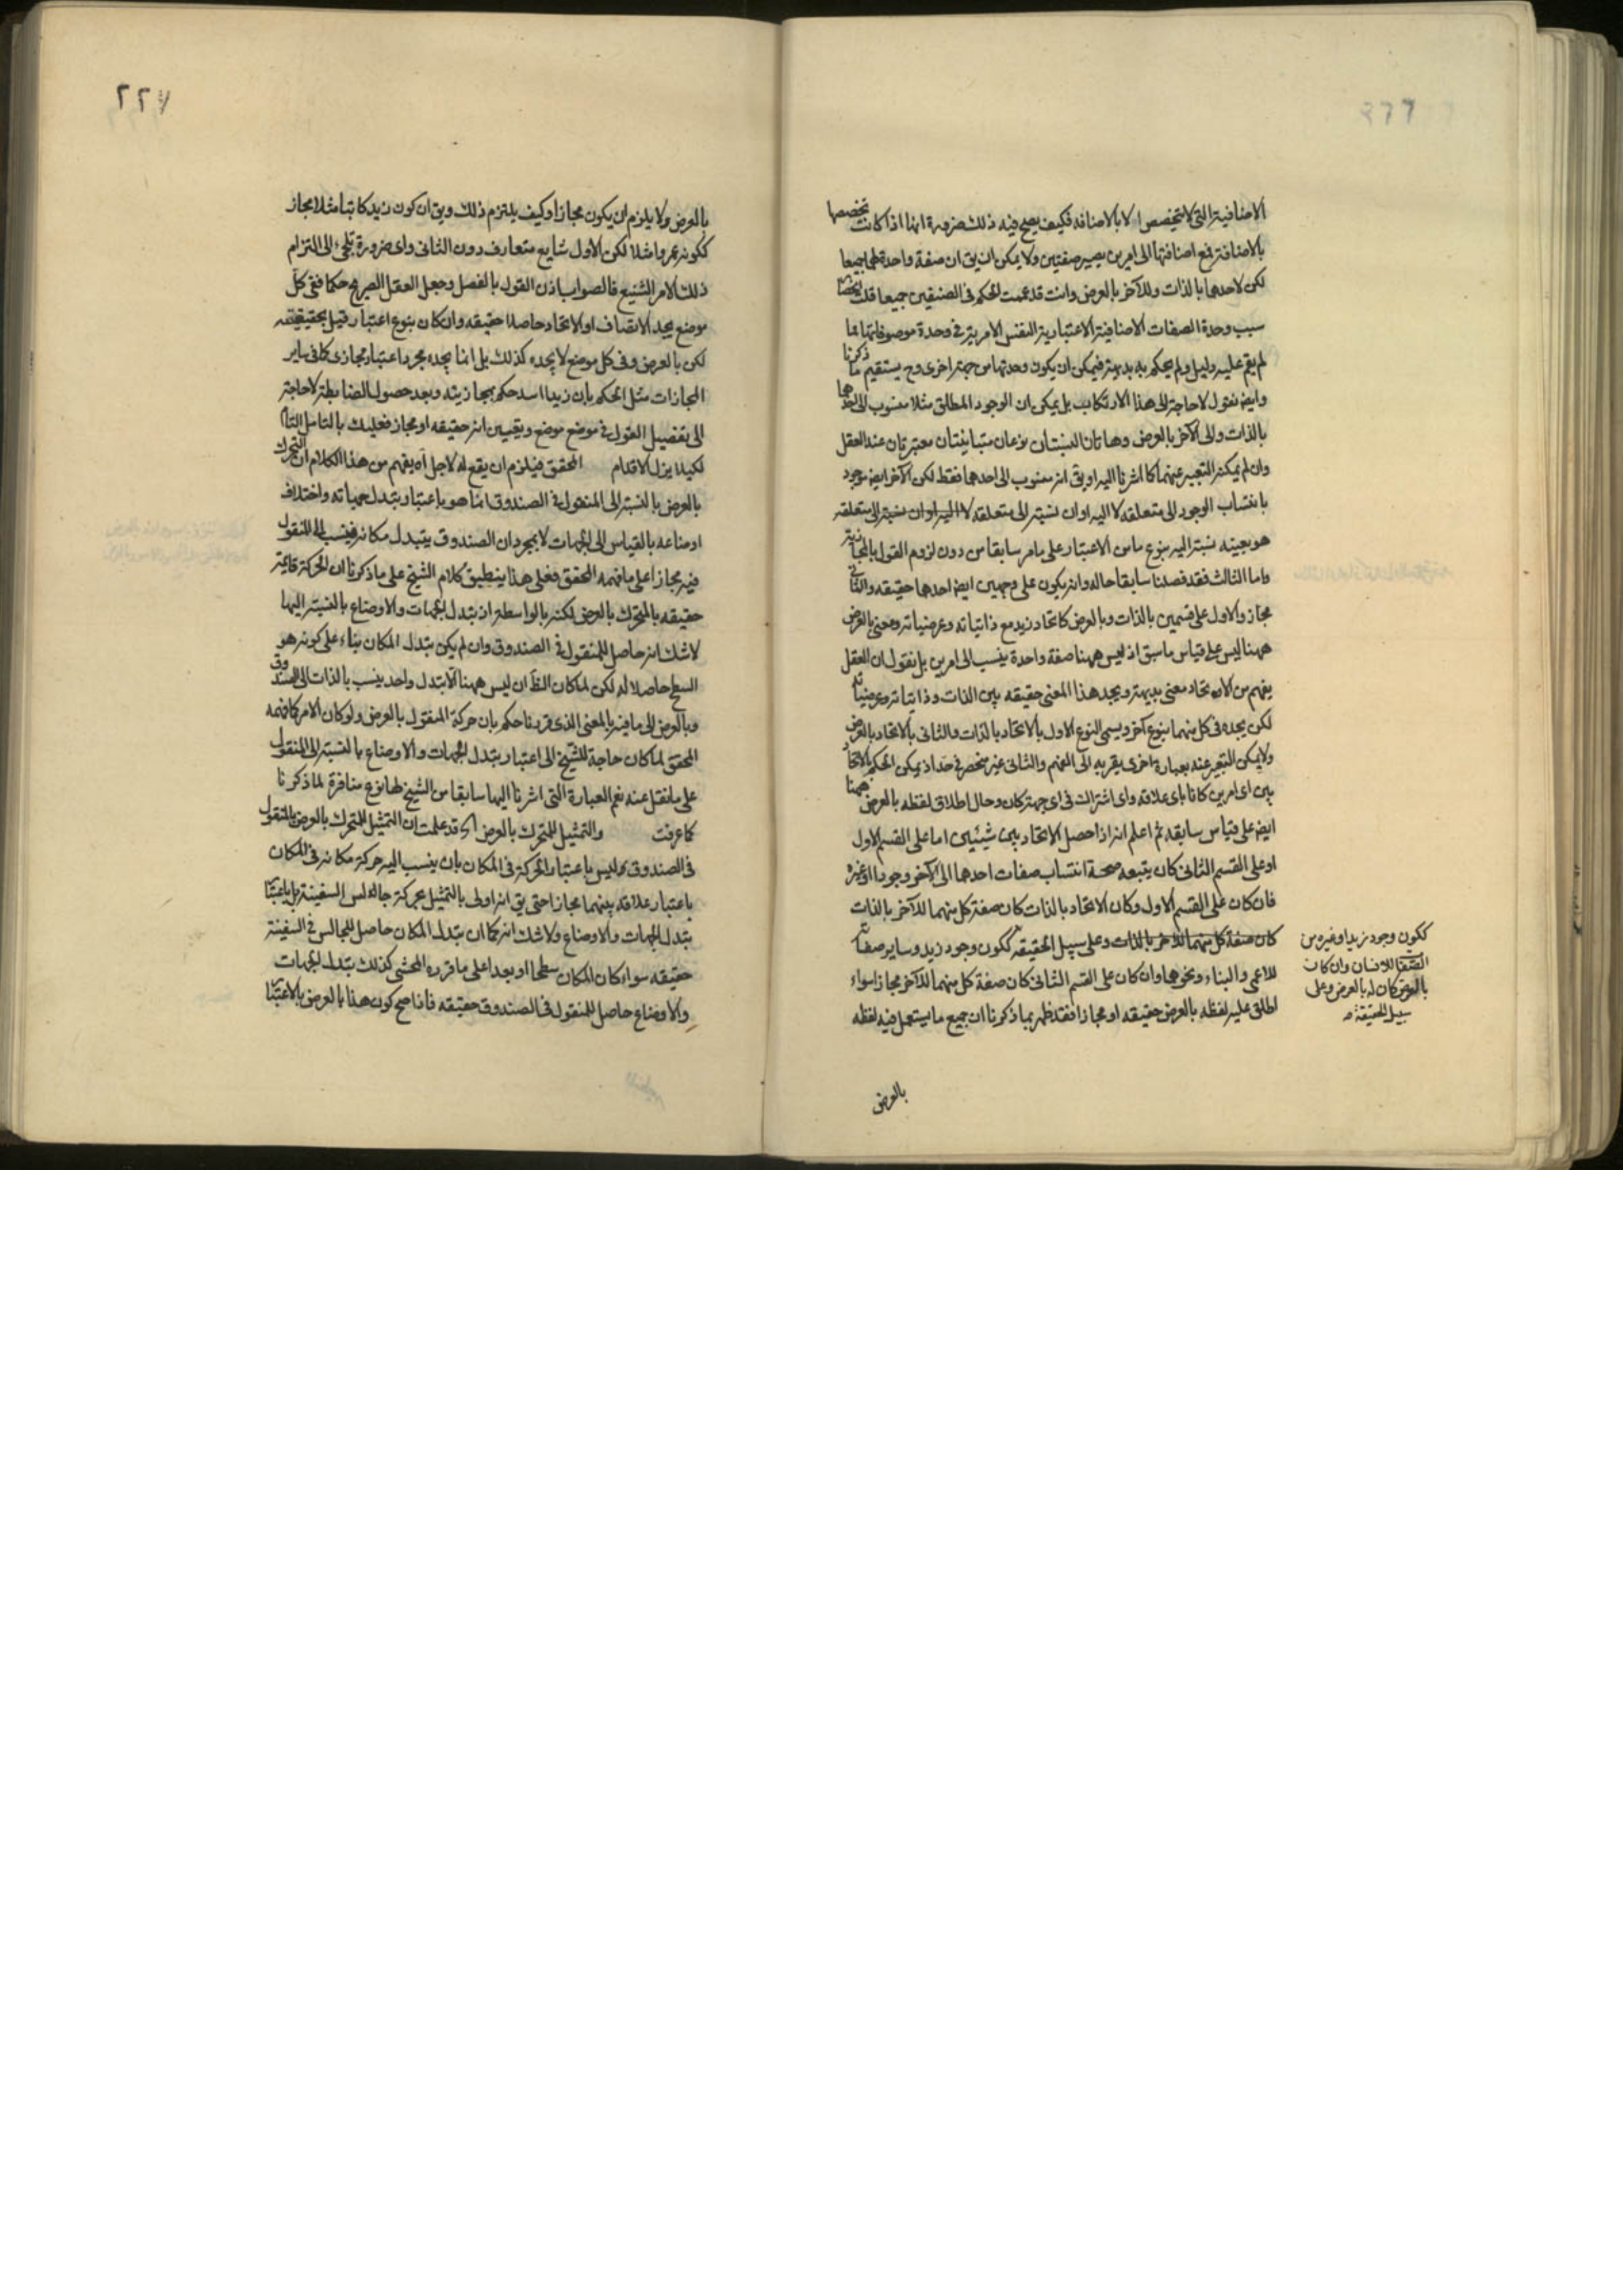 الاضافية التي لا تتخصص الا بالاضافة فكيف يصح فيه ذلك ضرورة انها اذا كانت تخصصها
بالاضافة فمع اضافتها الى امرين يصير صفتين ولا يمكن ان يق ان صفة واحدة لهما جميعا
لكن لاحدهما بالذات وللآخر بالعرض وانت قد عممت الحكم في الصنفين جميعا قلت
سبب وحدة الصفات الاضافية الاعتبارية النفس الامرية في وحدة موصوفاتها مما
لم يقم عليه دليل ولم يحكم به بديهة فيمكن ان يكون وحدتها من جهة اخرى وح يستقيم ما ذكرنا
وايض نقول لا حاجة الى هذا الارتكاب بل يمكن ان الوجود المطلق مثلا منسوب الى احدهما
بالذات والى الآخر بالعرض وهاتان النسبتان نوعان متباينتان معتبرتان عند العقل
وان لم يمكنه التعبير عنهما كما اشرنا اليه او يق انه منسوب الى احدهما فقط لكن الآخر ايض موجود
بانتساب الوجود الى متعلقه لا اليه او ان نسبته الى متعلقه لا اليه او ان نسبته الى متعلقه
هو بعينه نسبته اليه بنوع ما من الاعتبار على ما مر سابقا من دون لزوم القول بالمجازية
واما الثالث فقد فصلنا سابقا حاله وانه يكون على وجهين ايض احدهما حقيقه والثاني
مجاز والاول على قسمين بالذات وبالعرض كاتحاد زيد مع ذاتياته وعرضياته ومعنى بالعرض
ههنا ليس على قياس ما سبق اذ ليس ههنا صفة واحدة ينسب الى امرين بل نقول ان العقل
يفهم من الاتحاد معنى بديهة ويجد هذا المعنى حقيقه بين الذات وذاتياته وعرضياته
لكن يجده في كل منهما بنوع آخر ويسمى النوع الاول بالاتحاد بالذات والثاني بالاتحاد بالعرض
ولا يمكن التعبير عنه بعبارة اخرى يقربه الى الفهم والثاني غير منحصر في حد اذ يمكن الحكم بالاتحاد
بين اي امرين كانا باي علاقه واي اشتراك في اي جهة كان وحال اطلاق لفظه بالعرض ههنا
ايض على قياس سابقه ثم اعلم انه اذا حصل الاتحاد بين شيئين اما على القسم الاول
او على القسم الثاني كان يتبعه صحة انتساب صفات احدهما الى الآخر وجودا او غيره
فان كان على القسم الاول وكان الاتحاد بالذات كان صفة كل منهما للآخر بالذات
كان صفة كل منهما للاخر بالذات وعلى سبيل الحقيقه ككون وجود زيد وساير صفاته
للاعمى والبناء ونحوهما وان كان على القسم الثاني كان صفة كل منهما للآخر مجازا سواء
اطلق عليه لفظه بالعرض حقيقه او مجازا فقد ظهر بما ذكرنا ان جميع ما يستعمل فيه لفظه
ككون وجود زيد او غيره من
الصفات للانسان وان كان
بالعرض كان له بالعرض وعلى
سبيل الحقيقة صح
بالعرض
٢٢٧
بالعرض ولا يلزم ان يكون مجازا وكيف يلتزم ذلك ويق ان كون زيد كاتبا مثلا مجاز
ككونه عمروا مثلا لكن الاول شايع متعارف دون الثاني واي ضرورة تلجئ الى التزام
ذلك الامر الشنيع فالصواب اذن القول بالفصل وجعل العقل الصريح حكما ففي كل
موضع يجد الاتصاف او الاتحاد حاصلا حقيقه وان كان بنوع اعتبار قيل بحقيقيته
لكن بالعرض وفي كل موضع لا يجده كذلك بل انما يجده مجرد اعتبار مجازي كما في ساير
المجازات مثل الحكم بان زيدا اسد حكم بمجازيته وبعد حصول الضابطة لا حاجة
الى تفصيل القول في موضع موضع وتعيين انه حقيقه او مجاز فعليك بالتامل التام
لكيلا يزل الاقدام المحقق فيلزم ان يقع له لاجل آه يفهم من هذا الكلام ان التحرك
بالعرض بالنسبة الى المنقول في الصندوق انما هو باعتبار تبدل جهاته واختلاف
اوضاعه بالقياس الى الجهات لا بمجرد ان الصندوق يتبدل مكانه فينسب الى المنقول
فيه مجازا على ما فهمه المحقق فعلى هذا ينطبق كلام الشيخ على ما ذكرنا ان الحركة قائمة
حقيقه بالمتحرك بالعرض لكنه بالواسطة اذ تبدل الجهات والاوضاع بالنسبة اليها
لا شك انه حاصل للمنقول في الصندوق وان لم يكن تبدل المكان بناء على كونه هو
السطح حاصلا له لكن لما كان الظ ان ليس ههنا الا تبدل واحد ينسب بالذات الى الصندوق
وبالعرض الى ما فيه بالمعنى الذي قررنا حكم بان حركة المنقول بالعرض ولو كان الامر كما فهمه
المحقق لما كان حاجة للشيخ الى اعتبار تبدل الجهات والاوضاع بالنسبة الى المنقول
على ما نقل عنه نعم العبارة التي اشرنا اليها سابقا من الشيخ لها نوع منافرة لما ذكرنا
كما عرفت والتمثيل للمتحرك بالعرض آه قد علمت ان التمثيل للمتحرك بالعرض بالمنقول
في الصندوق ليس باعتبار الحركة في المكان بان ينسب اليه حركة مكانه في المكان
باعتبار علاقه بينهما مجازا حتى يق انه اولى بالتمثيل بحركة جالس السفينة بل باعتبار
تبدل الجهات والاوضاع ولا شك انه كما ان تبدل المكان حاصل للجالس في السفينة
حقيقه سواء كان المكان سطحا او بعدا على ما قرره المحشى كذلك تبدل الجهات
والاوضاع حاصل للمنقول في الصندوق حقيقه فاذا صح كون هذا بالعرض بالاعتبار